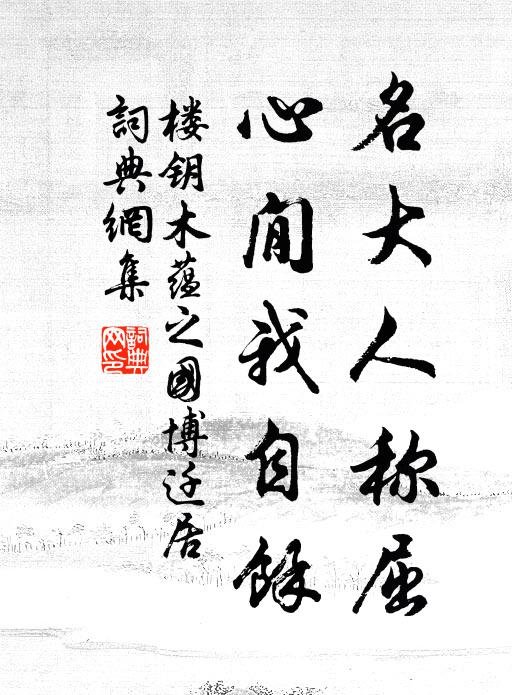 名大人称屈
心閒我自餘
楼钥木蕴之國博迁居
詞典網集
詞典
网印